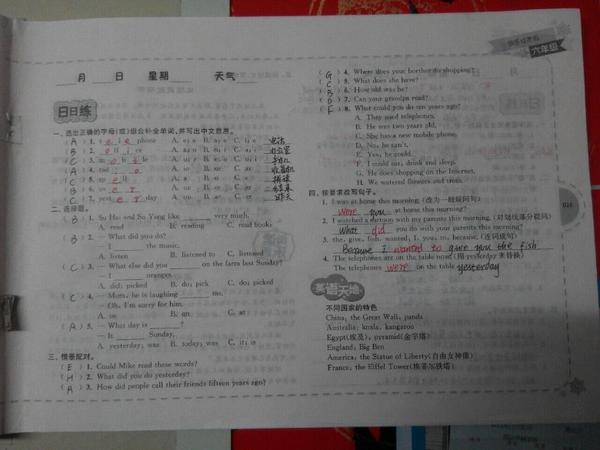 月 日 星期 天气
日日练
一、选出正确的字母(或)组合补全单词,并写出中文意思。
二、选择题。
( B ) 1. Su Hai and Su Yang like very much.
A. read B. reading C. read books
( B ) 2. — What did you do?
— I the music.
A. listen B. listened to C. listened
( C ) 3. — What else did you on the farm last Sunday?
— I oranges.
A. did; picked B. do; pick C. do; picked
( C ) 4. — Mum, he is laughing me.
— Oh, I'm sorry for him.
A. on B. an C. at
( A ) 5. — What day is ?
— It Sunday.
A. yesterday; was B. today; was C. it; is
三、情景配对。
( E ) 1. Could Mike read these words?
( H ) 2. What did you do yesterday?
( A ) 3. How did people call their friends fifteen years ago?
六年级
( G ) 4. Where does your borther do shopping?
( C ) 5. What does she have?
( B ) 6. How old was he?
( D ) 7. Can your grandpa read?
( F ) 8. What could you do ten years ago?
A. They used telephones.
B. He was two years old.
C. She has a new mobile phone.
D. No, he can't.
E. Yes, he could.
F. I could eat, drink and sleep.
G. He does shopping on the Internet.
H. We watered flowers and trees.
四、按要求改写句子。
1. I was at home this morning. (改为一般疑问句)
Were you at home this morning?
2. I watched a cartoon with my parents this morning. (对划线部分提问)
What did you do with your parents this morning?
3. the, give, fish, wanted, I, you, to, because. (连词成句)
Because I wanted to give you the fish
4. The telephones are on the table now. (用 yesterday 来替换)
The telephones were on the table yesterday
英语天地
不同国家的特色
China: the Great Wall, panda
Australia: koala, kangaroo
Egypt(埃及): pyramid(金字塔)
England: Big Ben
America: the Statue of Liberty(自由女神像)
France: the Eiffel Tower(埃菲尔铁塔)